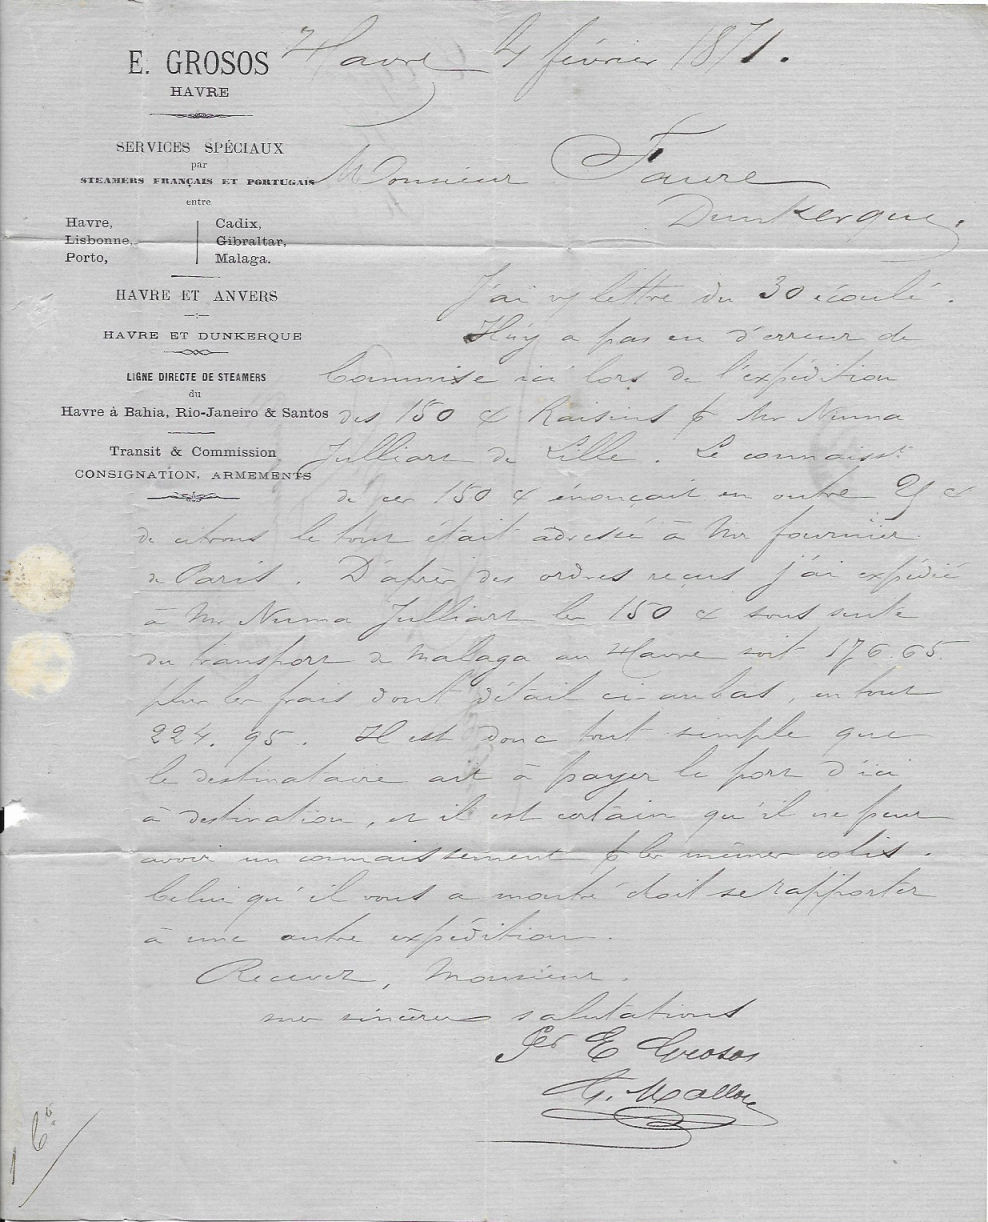 E. GROSOS
HAVRE
SERVICES SPÉCIAUX
par
STEAMERS FRANÇAIS ET PORTUGAIS
entre
Havre,
Lisbonne,
Porto,
Cadix,
Gibraltar,
Malaga.
HAVRE ET ANVERS
HAVRE ET DUNKERQUE
LIGNE DIRECTE DE STEAMERS
du
Havre à Bahia, Rio-Janeiro & Santos
Transit & Commission
CONSIGNATION, ARMEMENTS
Havre 4 février 1871.
Monsieur Faure
Dunkerque.
J'ai v/ lettre du 30 écoulé.
Il n'y a pas eu d'erreur de
Commise ici lors de l'expédition
des 150 Raisins p Mr Numa
Julliart de Lille. Le connaisst
de ces 150 énonçait en outre 25
de citrons le tout était adressé à Mr fournier
de Paris. D'après des ordres reçus j'ai expédié
à Mr Numa Julliart les 150 sous suite
du transport de malaga au Havre soit 176.65
plus les frais dont détail ci-aubas, en tout
224.95. Il est donc tout simple que
le destinataire ait à payer le port d'ici
à destination, et il est certain qu'il ne peut
avoir un connaissement p les mêmes colis.
Celui qu'il vous a montré doit se rapporter
à une autre expédition.
Recevez, Monsieur.
mes sincères salutations
Por E Grosos